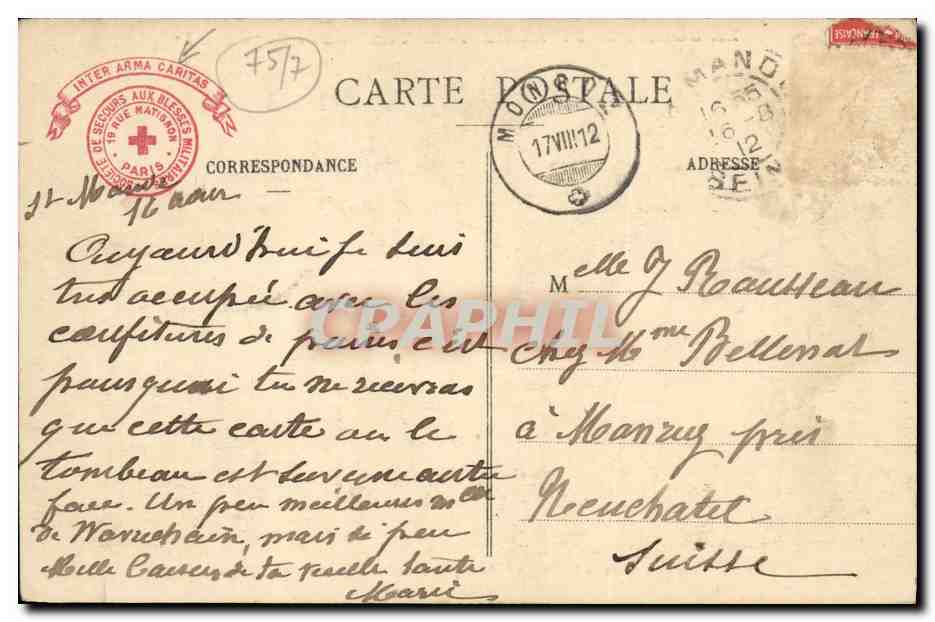 INTER ARMA CARITAS
SOCIÉTÉ DE SECOURS AUX BLESSÉS MILITAIRES
19 RUE MATIGNON
PARIS
75/7
CARTE POSTALE
CORRESPONDANCE
ADRESSE
17 VIII 12
FRANÇAISE
St Mandé
16 aout
Aujourd'hui je suis
très occupée avec les
confitures de prunes c'est
pourquoi tu ne recevras
que cette carte ou le
tombeau est sur une autre
face. Un peu meilleures
de mais si peu
Mille de ta vieille tante
Marie
Melle J Rousseau
chez Mme
à Monruz près
Neuchatel
Suisse
CPAPHIL